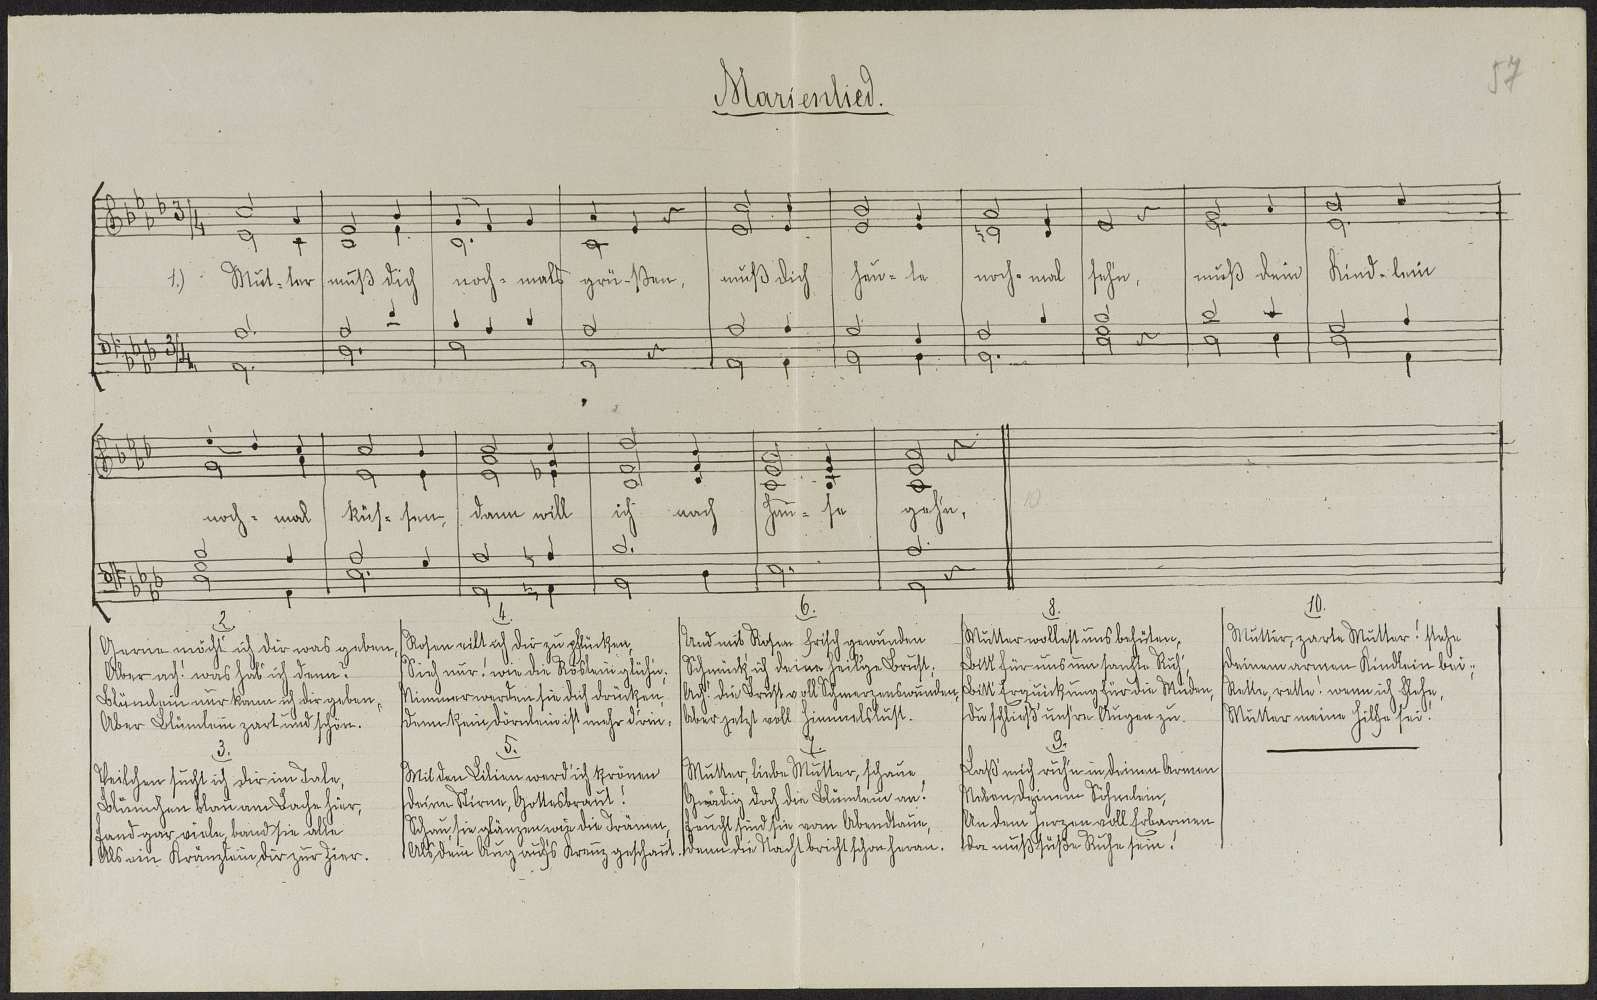 Marienlied.
57
3/4
1.) Mut-ter muß dich noch-mals grü-ßen, muß dich heu-te noch-mal seh'n, muß dein Kind-lein
3/4
noch-mal küs-sen, dann will ich nach Hau-se geh'n.
2.
Gerne möcht' ich dir was geben,
Aber ach! was hab' ich denn?
Blümlein nur kann ich dir geben,
Aber Blümlein zart und schön.
3.
Veilchen sucht ich dir im Tale,
Blümchen blau am Bache hier,
Fand gar viele, band sie alle
Als ein Kränzlein dir zur Zier.
4.
Rosen eilt ich dir zu pflücken,
Sieh nur! wie die Röslein glüh'n.
Nimmer werden sie dich drücken,
Denn kein Dörnlein ist mehr drin.
5.
Mit den Lilien werd' ich krönen
Deine Stirne, Gottesbraut!
Schau, sie glänzen wie die Tränen,
Als dein Aug auf's Kreuz geschaut.
6.
Und mit Rosen frisch gewunden
Schmück ich deine heilige Brust;
Ach! die Brust voll Schmerzenswunden,
Aber jetzt voll Himmelslust.
7.
Mutter, liebe Mutter, schaue
Gnädig doch die Blümlein an!
Feucht sind sie vom Abendtaue,
Denn die Nacht bricht schon heran.
8.
Mutter wollest uns behüten,
Bitt' für uns um sanfte Ruh',
Bitt' Erquickung für die Müden,
Du schließ' uns're Augen zu.
9.
Laß' mich ruh'n in deinen Armen
Neben deinem Söhnelein,
An dem Herzen voll Erbarmen
Da muß süße Ruhe sein!
10.
Mutter, zarte Mutter! stehe
Deinem armen Kindlein bei;
Rette, rette! wenn ich flehe,
Mutter meine Hilfe sei!